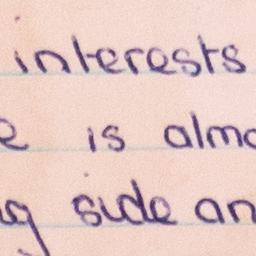 interests
e is almo
ug side an